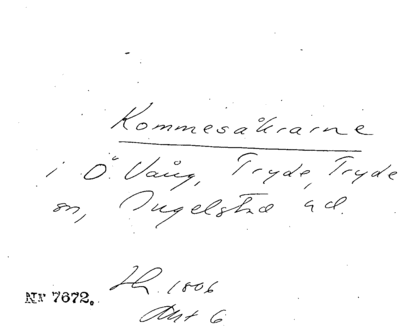 Kommesåkrarne
i Ö. Vång, Tryde, Tryde
sn, Ingelstad hd.
Nr 7672.
Lh. 1806
Akt 6